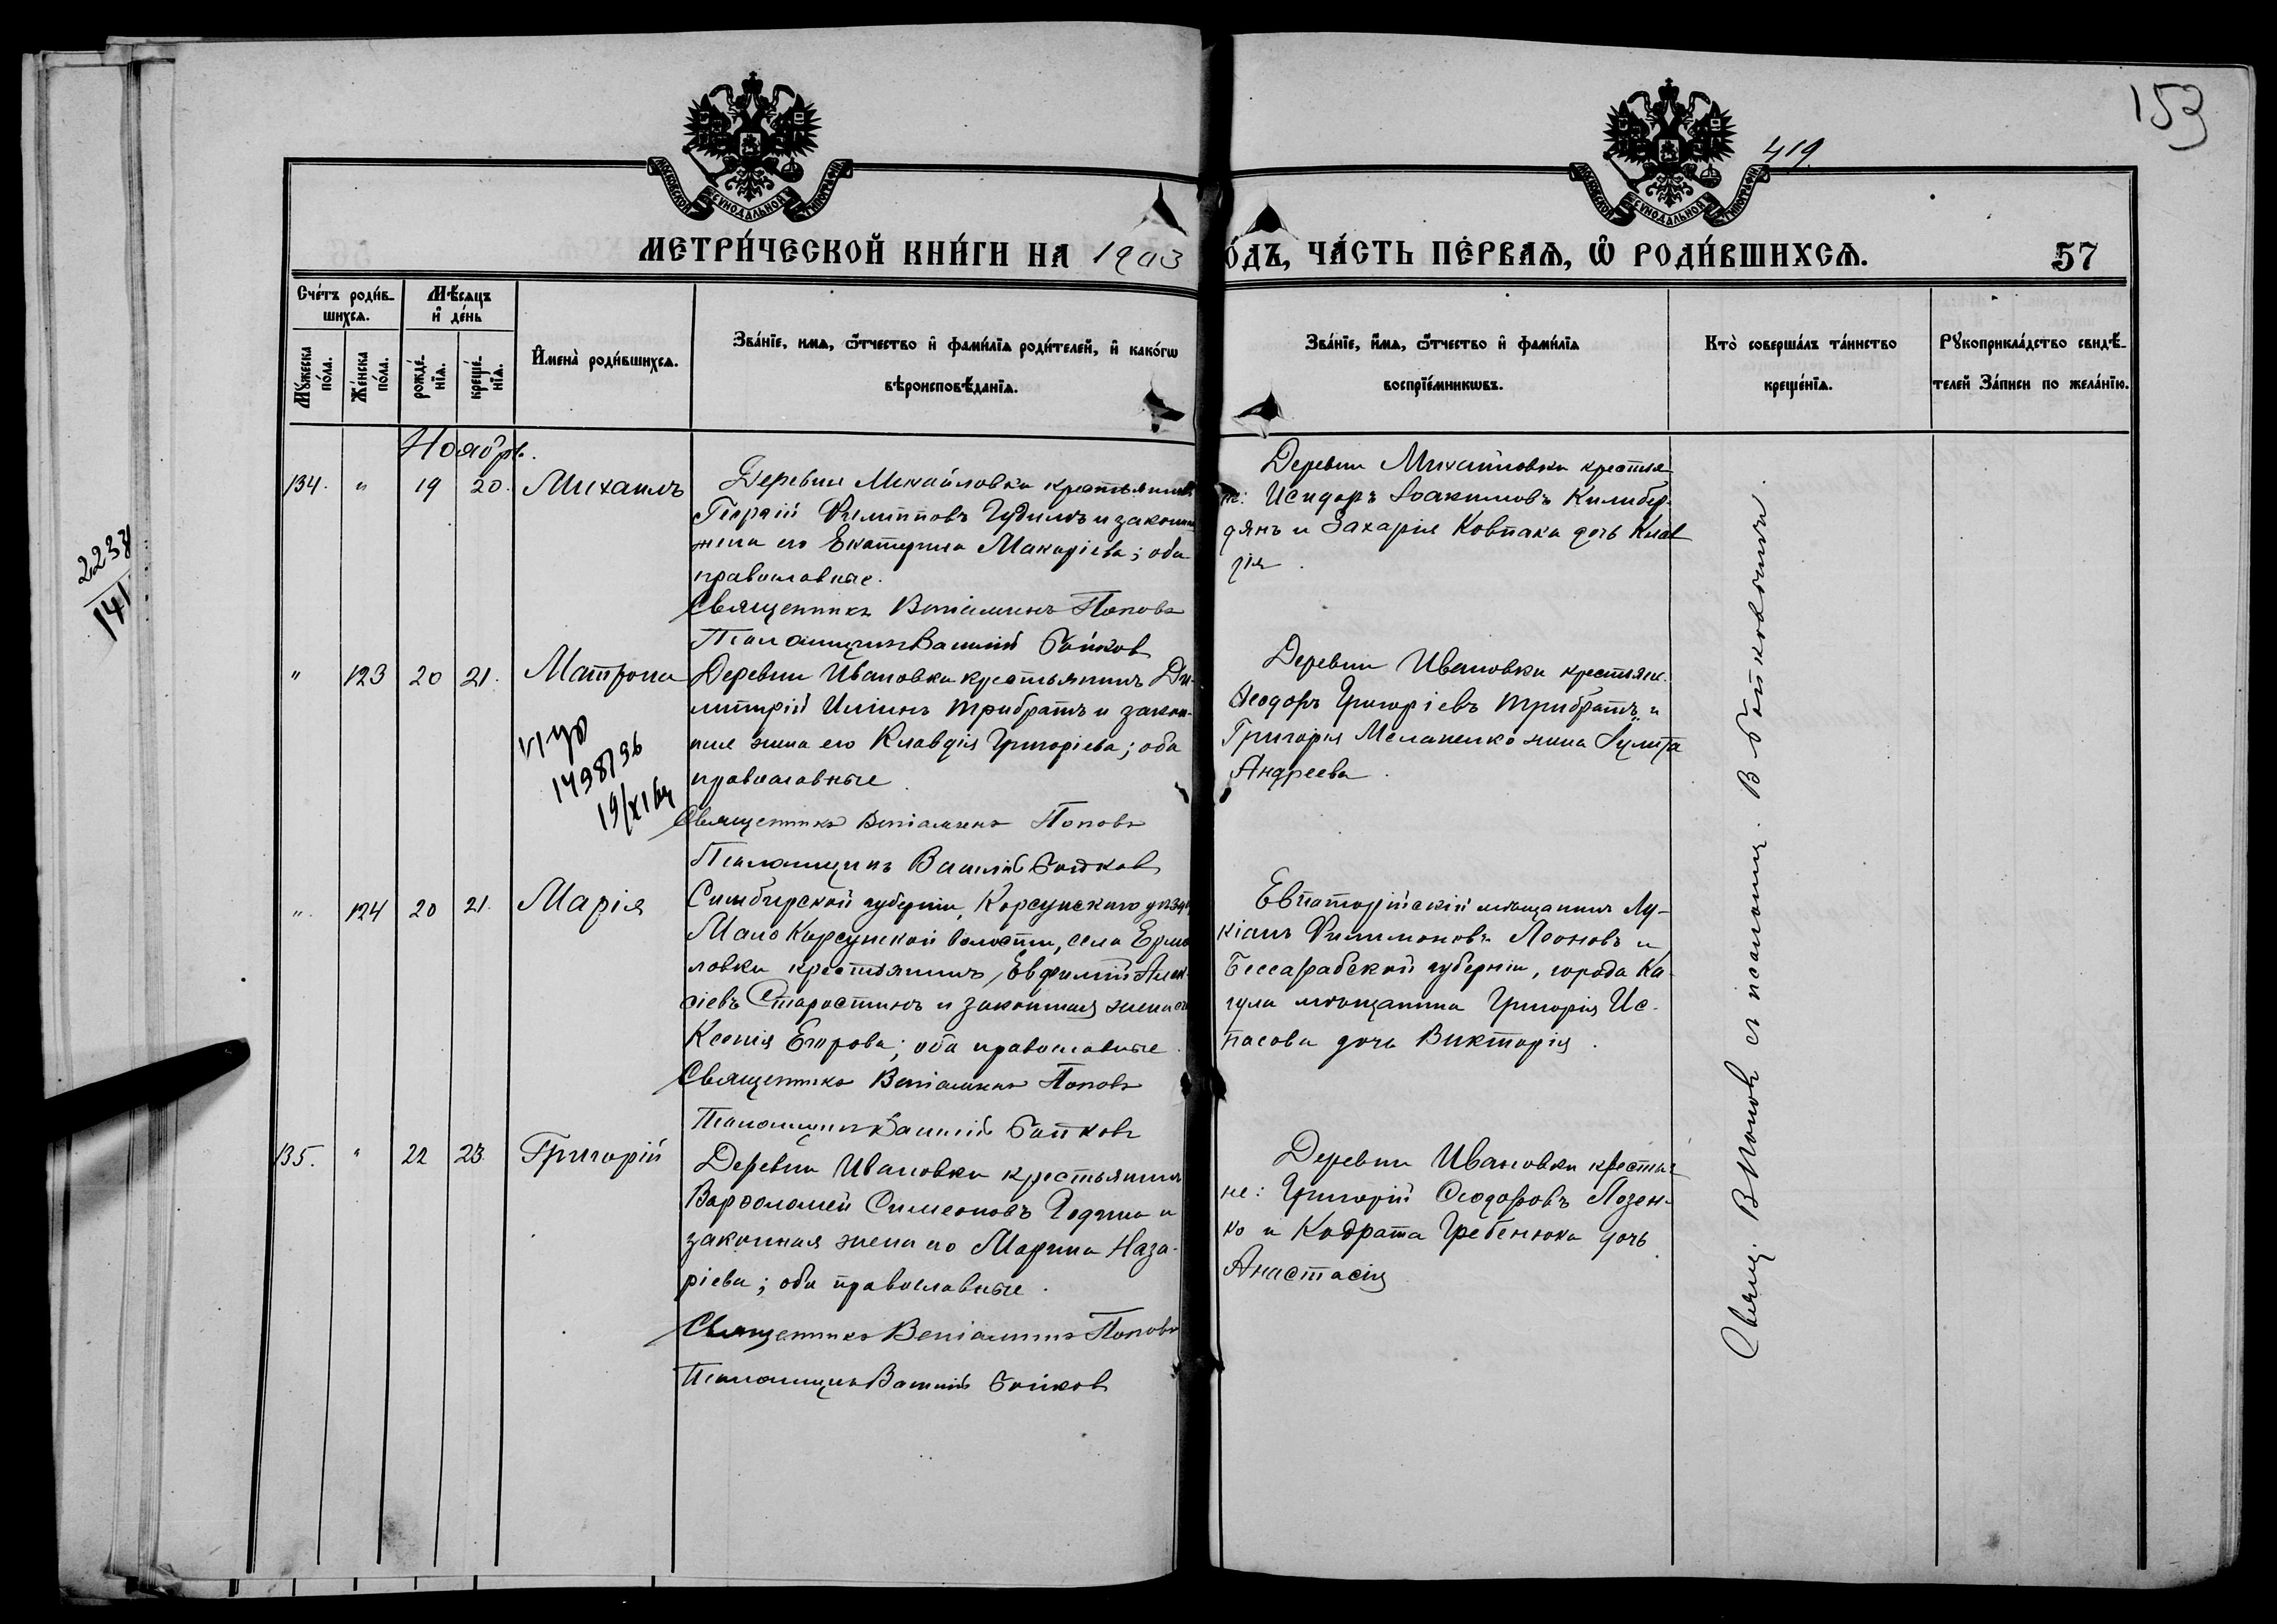 153
419
МОСКОВСКОЙ СѴНОДАЛЬНОЙ ТИПОГРАФІИ
МОСКОВСКОЙ СѴНОДАЛЬНОЙ ТИПОГРАФІИ
МЕТРИ́ЧЕСКОЙ КНИ́ГИ НА 1903
О́ДЪ, ЧА́СТЬ ПЕ́РВАѦ, Ѡ҆ РОДИ́ВШИХСѦ.
57
Сче́тъ роди́в-
шихсѧ.
Мѣ́сѧцъ
и҆ де́нь
Мꙋ́жеска
по́ла.
Же́нска
по́ла.
рожде́-
нїѧ.
креще́-
нїѧ.
И҆мена̀ роди́вшихсѧ.
Зва́нїе, имѧ, ѻ҆́тчество и҆ фами́лїѧ роди́телей, и҆ како́гѡ
вѣроисповѣ́данїѧ.
Зва́нїе, и҆́мѧ, ѻ҆́тчество и҆ фами́лїѧ
воспрїе́мникѡвъ.
Кто̀ соверша́лъ та́инство
креще́нїѧ.
Рꙋкоприкла́дство свидѣ́-
телей За́писи по жела́нїю.
Ноябрь.
134. " 19 20. Михаилъ
Деревни Михайловки крестьянинъ
Георгій Филипповъ Гудимъ и законн
жена его Екатерина Макаріева; оба
православные.
Священникъ Веніаминъ Поповъ
Псаломщикъ Василій Бойков
Деревни Михайловки крестья
не: Исидоръ Іоакимовъ Килибер-
дянъ и Захарія Ковпака дочь Клав
дія.
" 123 20 21. Матрона
Деревни Ивановки крестьянинъ Ди-
митрій Иліинъ Трибратъ и закон-
ная жена его Клавдія Григоріева; оба
православные
Священникъ Веніаминъ Поповъ
Псаломщикъ Василій Бойков
Деревни Ивановки крестьяне.
Ѳеодоръ Григоріевъ Трибратъ и
Григорія Меланенко жена Іулита
Андреева.
1498/96
19/XI
" 124 20 21. Марія
Симбирской губерніи, Корсунскаго уѣзда,
Мало Корсунской волости, села Ермо
ловки крестьянинъ Евфимій Алек-
сіевъ Старостинъ и законная жена его
Ксенія Егорова; оба православные.
Священникъ Веніаминъ Поповъ
Псаломщикъ Василій Бойковъ
Евпаторійскій мѣщанинъ Лу-
кіанъ Филимоновъ Леоновъ и
Бессарабской губерніи, города Ка-
гула мѣщанина Григорія Ис-
пасова дочь Викторія.
135. " 22 23. Григорій
Деревни Ивановки крестьянинъ
Варѳоломей Симеоновъ Година и
законная жена его Марина Наза-
ріева; оба православные.
Священникъ Веніаминъ Поповъ
Псаломщикъ Василій Бойков
Деревни Ивановки крестья
не: Григорій Ѳеодоровъ Лозен-
ко и Кодрата Гребенюка дочь
Анастасія
Свящ. В Поповъ съ псаломщ. В. Бойковымъ.
2238
141